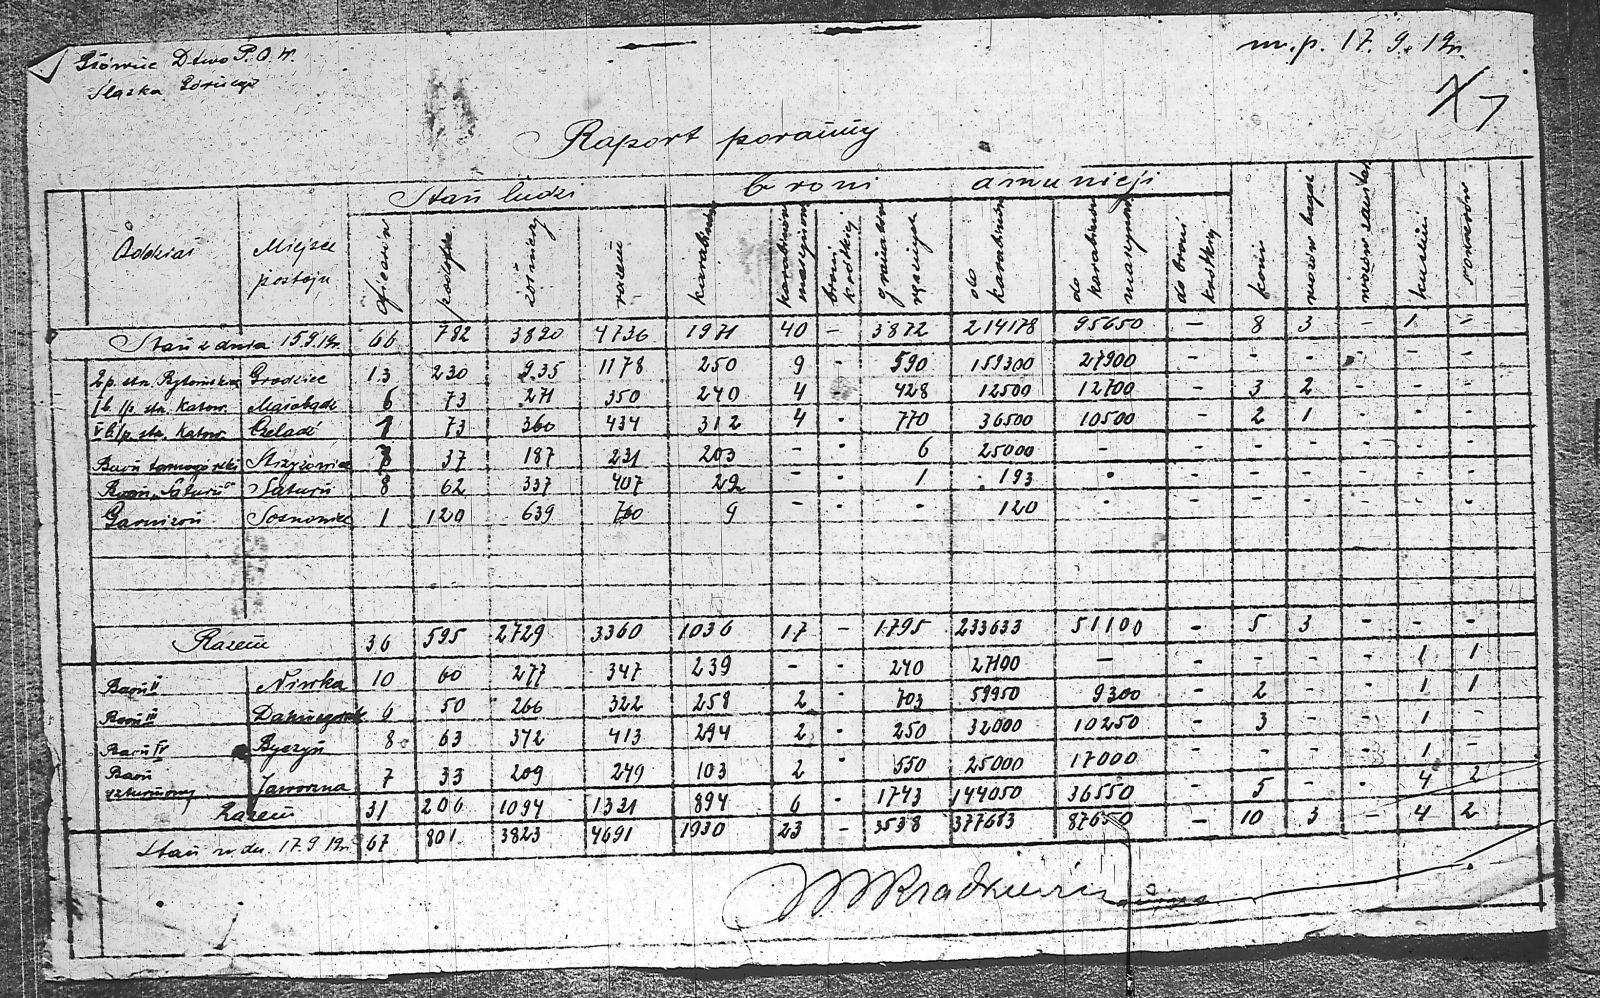 Główne Dtwo P.O.W.
Śląska Górnego
m.p. 17. 9. 19r.
X 7
Raport poranny
Oddział Miejsce postoju Stan ludzi broni amunicji
oficerów podofic. żołnierzy razem karabinów karabinów maszynow. broni krótkiej granatów ręcznych do karabinów do karabinów maszynow. do broni krótkiej koni wozów bagaż wozów sanitar. kuchni rowerów
Stan z dnia 15.9.19r. 66 782 3820 4736 1971 40 - 3872 214178 95650 - 8 3 - 1 -
2 p. strz. Bytomskich Grodziec 13 230 935 1178 250 9 - 590 159300 27900 - - - - - -
I b. 1p. strz. Katow. Małobądz 6 73 271 350 240 4 - 428 12500 12700 - 3 2 - - -
V b. 1p. strz. Katow. Czeladź 1 73 360 434 312 4 - 770 36500 10500 - 2 1 - - -
Baon tarnogórski Strzyżowice 7 37 187 231 203 - - 6 25000 - - - - - - -
Baon „Saturn" Saturn 8 62 337 407 22 - - 1 193 - - - - - - -
Garnizon Sosnowiec 1 120 639 760 9 - - - 120 - - - - - - -
Razem 36 595 2729 3360 1036 17 - 1795 233633 51100 - 5 3 - - -
Baon II Niwka 10 60 277 347 239 - - 240 27100 - - - - - 1 1
Baon III 6 50 266 322 258 2 - 703 59950 9300 - 2 - - 1 1
Baon IV Byczyn 8 63 342 413 294 2 - 250 32000 10250 - 3 - - 1 -
Baon szturmowy Jaworzna 7 33 209 249 103 2 - 550 25000 17000 - - - - 1 -
Razem 31 206 1094 1331 894 6 - 1743 144050 36550 - 5 - - 4 2
Stan w dn. 17.9 19r. 67 801 3823 4691 1930 23 - 3538 377683 87650 - 10 3 - 4 2